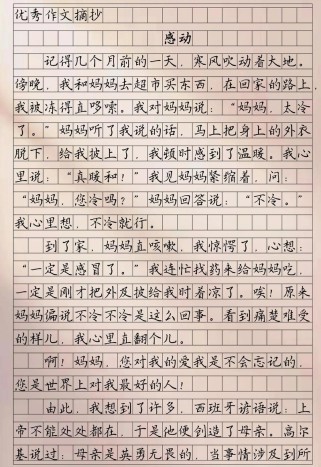 优秀作文摘抄
感动
记得几个月前的一天，寒风吹动着大地。
傍晚，我和妈妈去超市买东西，在回家的路上，
我被冻得直哆嗦。我对妈妈说：“妈妈，太冷
了。”妈妈听了我说的话，马上把身上的外衣
脱下，给我披上了，我顿时感到了温暖。我心
里说：“真暖和！”我见妈妈紧缩着，问：
“妈妈，您冷吗？”妈妈回答说：“不冷。”
我心里想，不冷就行。
到了家，妈妈直咳嗽，我惊愕了，心想：
“一定是感冒了。”我连忙找药来给妈妈吃，
一定是刚才把外及披给我时着凉了。唉！原来
妈妈偏说不冷不冷是这么回事。看到痛楚难受
的样儿，我心里直翻个儿。
啊！妈妈，您对我的爱我是不会忘记的，
您是世界上对我最好的人！
由此，我想到了许多，西班牙谚语说：上
帝不能处处都在，于是他便创造了母亲。高尔
基说过：母亲是英勇无畏的，当事情涉及到所